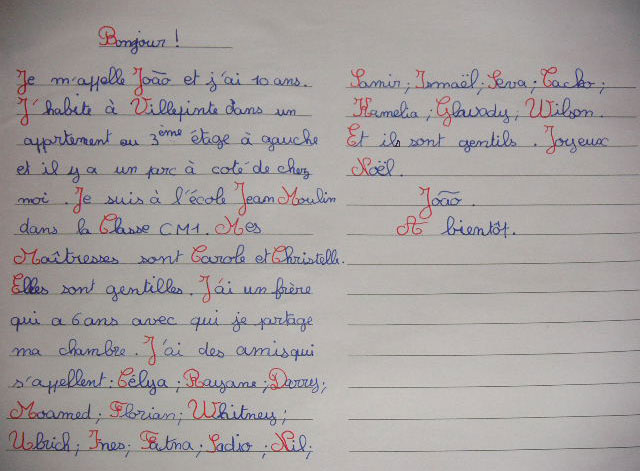 Bonjour !
Je m'appelle João et j'ai 10 ans.
J'habite à Villepinte dans un
appartement au 3ème étage à gauche
et il y a un parc à coté de chez
moi. Je suis à l'école Jean Moulin
dans la Classe CM1. Mes
Maîtresses sont Carole et Christelle.
Elles sont gentilles. J'ai un frère
qui a 6 ans avec qui je partage
ma chambre. J'ai des amis qui
s'appellent : Célya ; Rayane ; Darry ;
Moamed ; Florian ; Whitney ;
Ulrich ; Ines ; Fatna ; Sadio ; Nil ;
Samir ; Ismaël ; Seva ; Tacko ;
Hamelia ; Glawdy ; Wilson.
Et ils sont gentils. Joyeux
Noël.
João.
A bientôt.